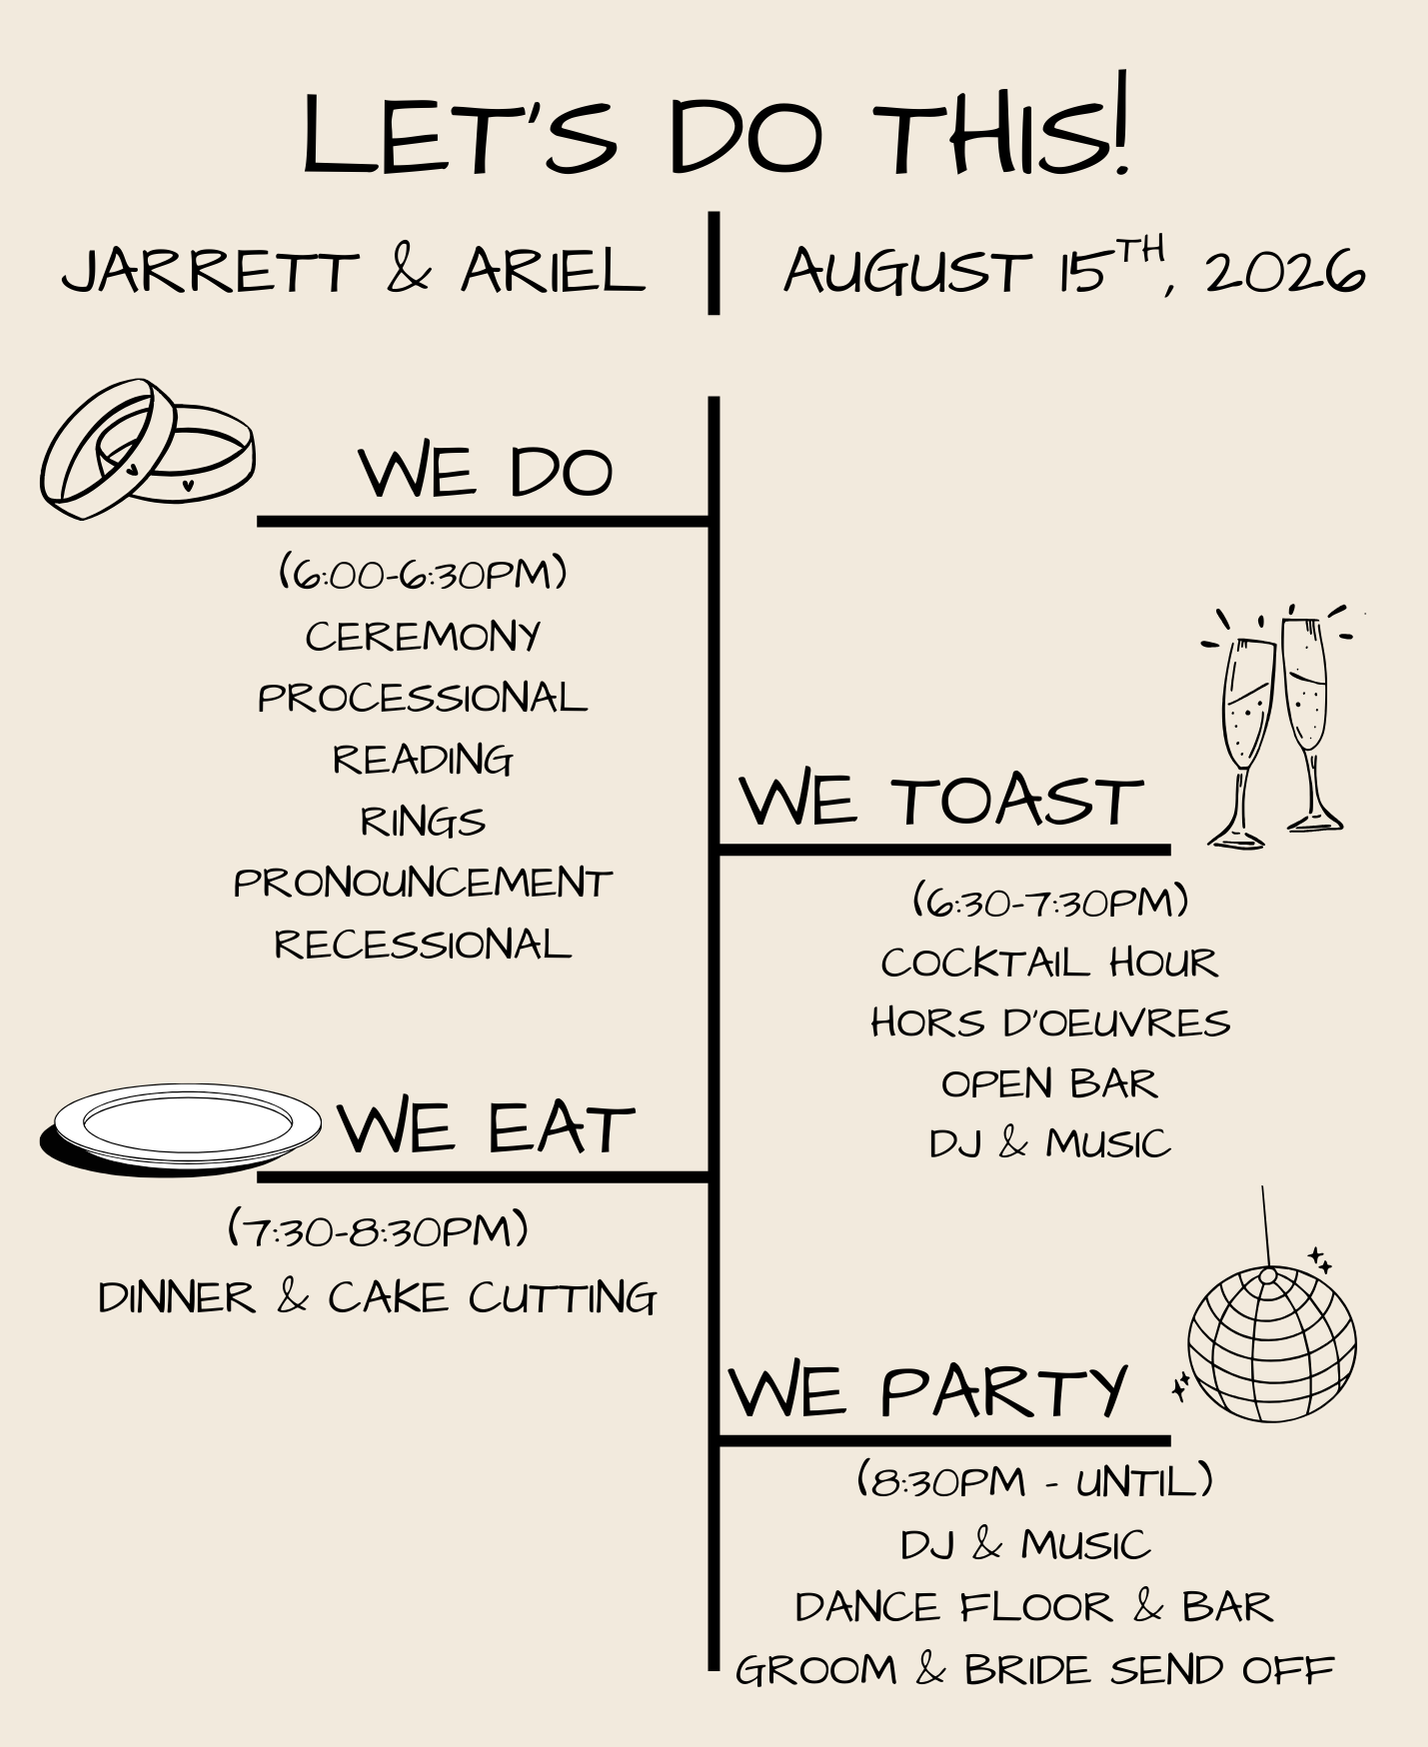 LET'S DO THIS!
JARRETT & ARIEL
AUGUST 15TH, 2026
WE DO
(6:00-6:30PM)
CEREMONY
PROCESSIONAL
READING
RINGS
PRONOUNCEMENT
RECESSIONAL
WE TOAST
(6:30-7:30PM)
COCKTAIL HOUR
HORS D'OEUVRES
OPEN BAR
DJ & MUSIC
WE EAT
(7:30-8:30PM)
DINNER & CAKE CUTTING
WE PARTY
(8:30PM - UNTIL)
DJ & MUSIC
DANCE FLOOR & BAR
GROOM & BRIDE SEND OFF